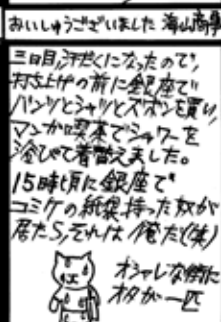 おいしゅうございました 海山商事
三日目、汗だくになったので、
打ち上げの前に銀座で
パンツとシャツとズボンを買い、
マンガ喫茶でシャワーを
浴びて着替えました。
15時頃に銀座で
コミケの紙袋持った奴が
居たら、それは俺だ(笑)
オシャレな街に
オタが一匹